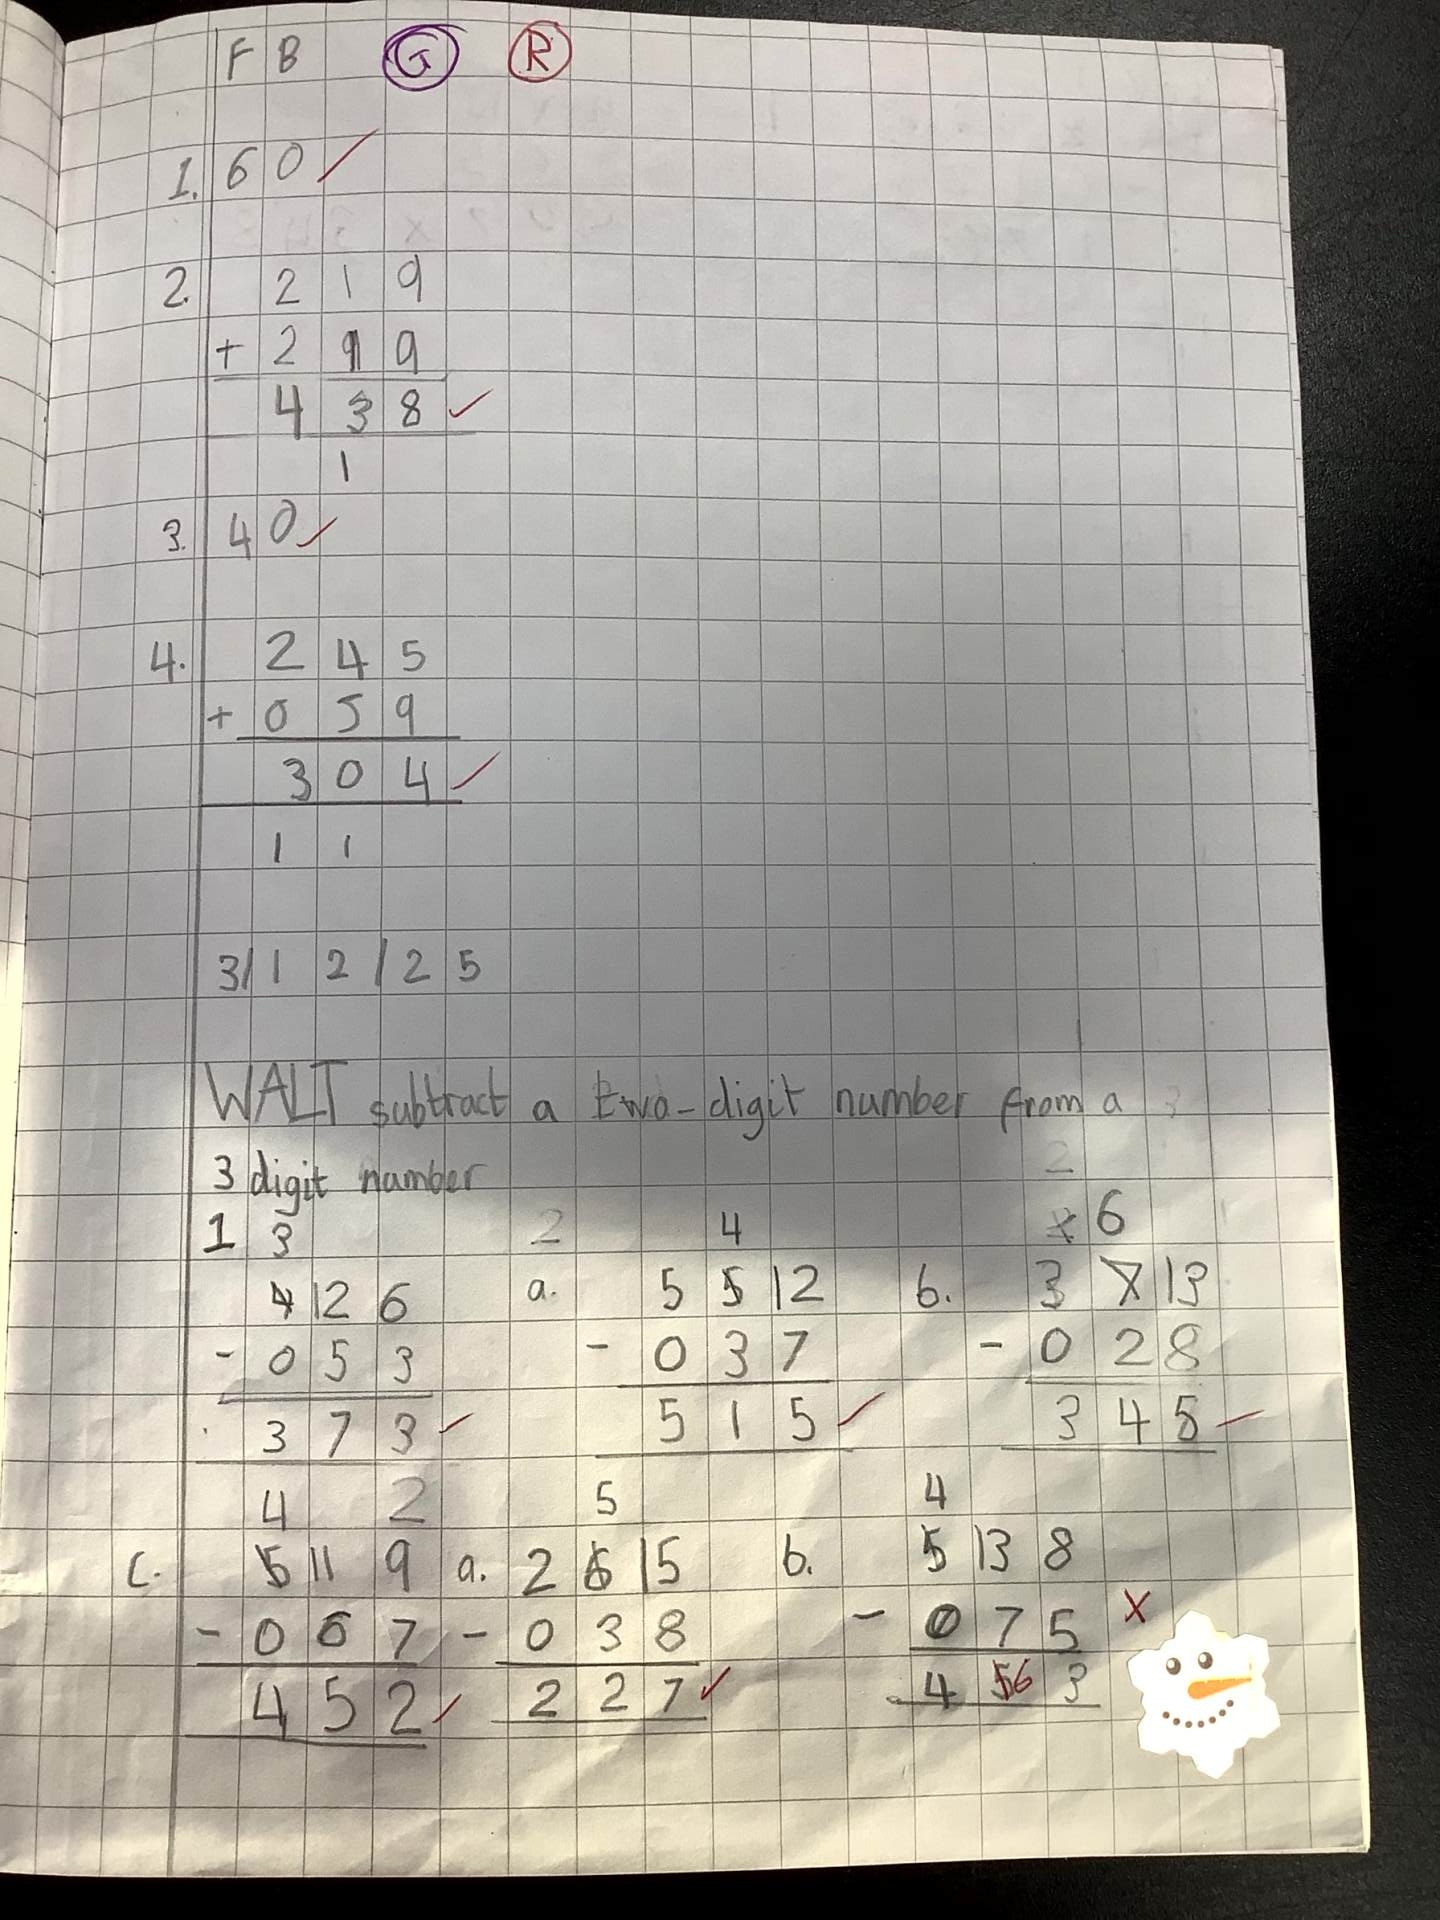 F B G R
1. 60
2. 219
+ 219
438
1
3. 40
4. 245
+ 059
304
1 1
3/12/25
WALT subtract a two-digit number from a
3 digit number
1 3 2 4 6
4 12 6 a. 5 5 12 b. 3 7 13
- 0 5 3 - 0 3 7 - 0 2 8
3 7 3 5 1 5 3 4 5
4 2 5 4
c. 5 11 9 a. 2 6 15 b. 5 13 8
- 0 6 7 - 0 3 8 - 0 7 5
4 5 2 2 2 7 4 56 3